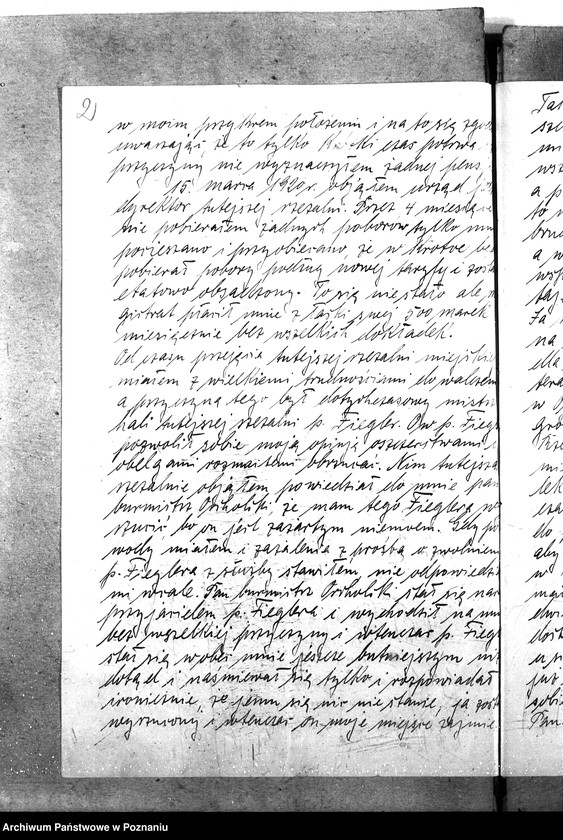 2)
w moim przykrem położeniu i na to się zgo
uważając, że to tylko krótki czas potrwa
przyczyny nie wyznaczyłem żadnej pens
15. marca 1920 r. objąłem urząd ja
dyrektor tutejszej rzezalni. Przez 4 miesiące
nie pobierałem żadnych poborów tylko mn
pocieszano i przyobiecano, że w krótce bę
pobierał pobory podług nowej taryfy i zosta
etatowo obsadzony. To się nie stało ale m
gistrat płacił mnie z łaski swej 500 marek
miesięcznie bez wszelkich dokładek.
Od czasu przejęcia tutejszej rzezalni miejskie
miałem z wielkiemi trudnościami do walczen
a przyczyną tego był dotychczasowy mistrz
hali tutejszej rzezalni p. Fiegler. Ów p. Fieg
pozwolił sobie moją opinję oszczerstwami i
obelgami rozmaitemi obrzucać. Nim tutejszą
rzezalnie objąłem powiedział do mnie pan
burmistrz że mam tego Fieglera wy
rzucić bo on jest zażartym niemcem. Gdy po
wody miałem i zażalenia z prośbą o zwolnieni
p. Fieglera z służby stawiłem nie odpowiedzi
mi wcale. Pan burmistrz stał się nar
przyjacielem p. Fieglera i wychodził na mn
bez wszelkiej przyczyny i wtenczas p. Fieg
stał się wobec mnie jeszcze butniejszym niż
dotąd i naśmiewał się tylko i rozpowiadał
ironicznie, że jemu się nic nie stanie, ja zost
wyrzucony i wtenczas on moje miejsce zajmie
Archiwum Państwowe w Poznaniu